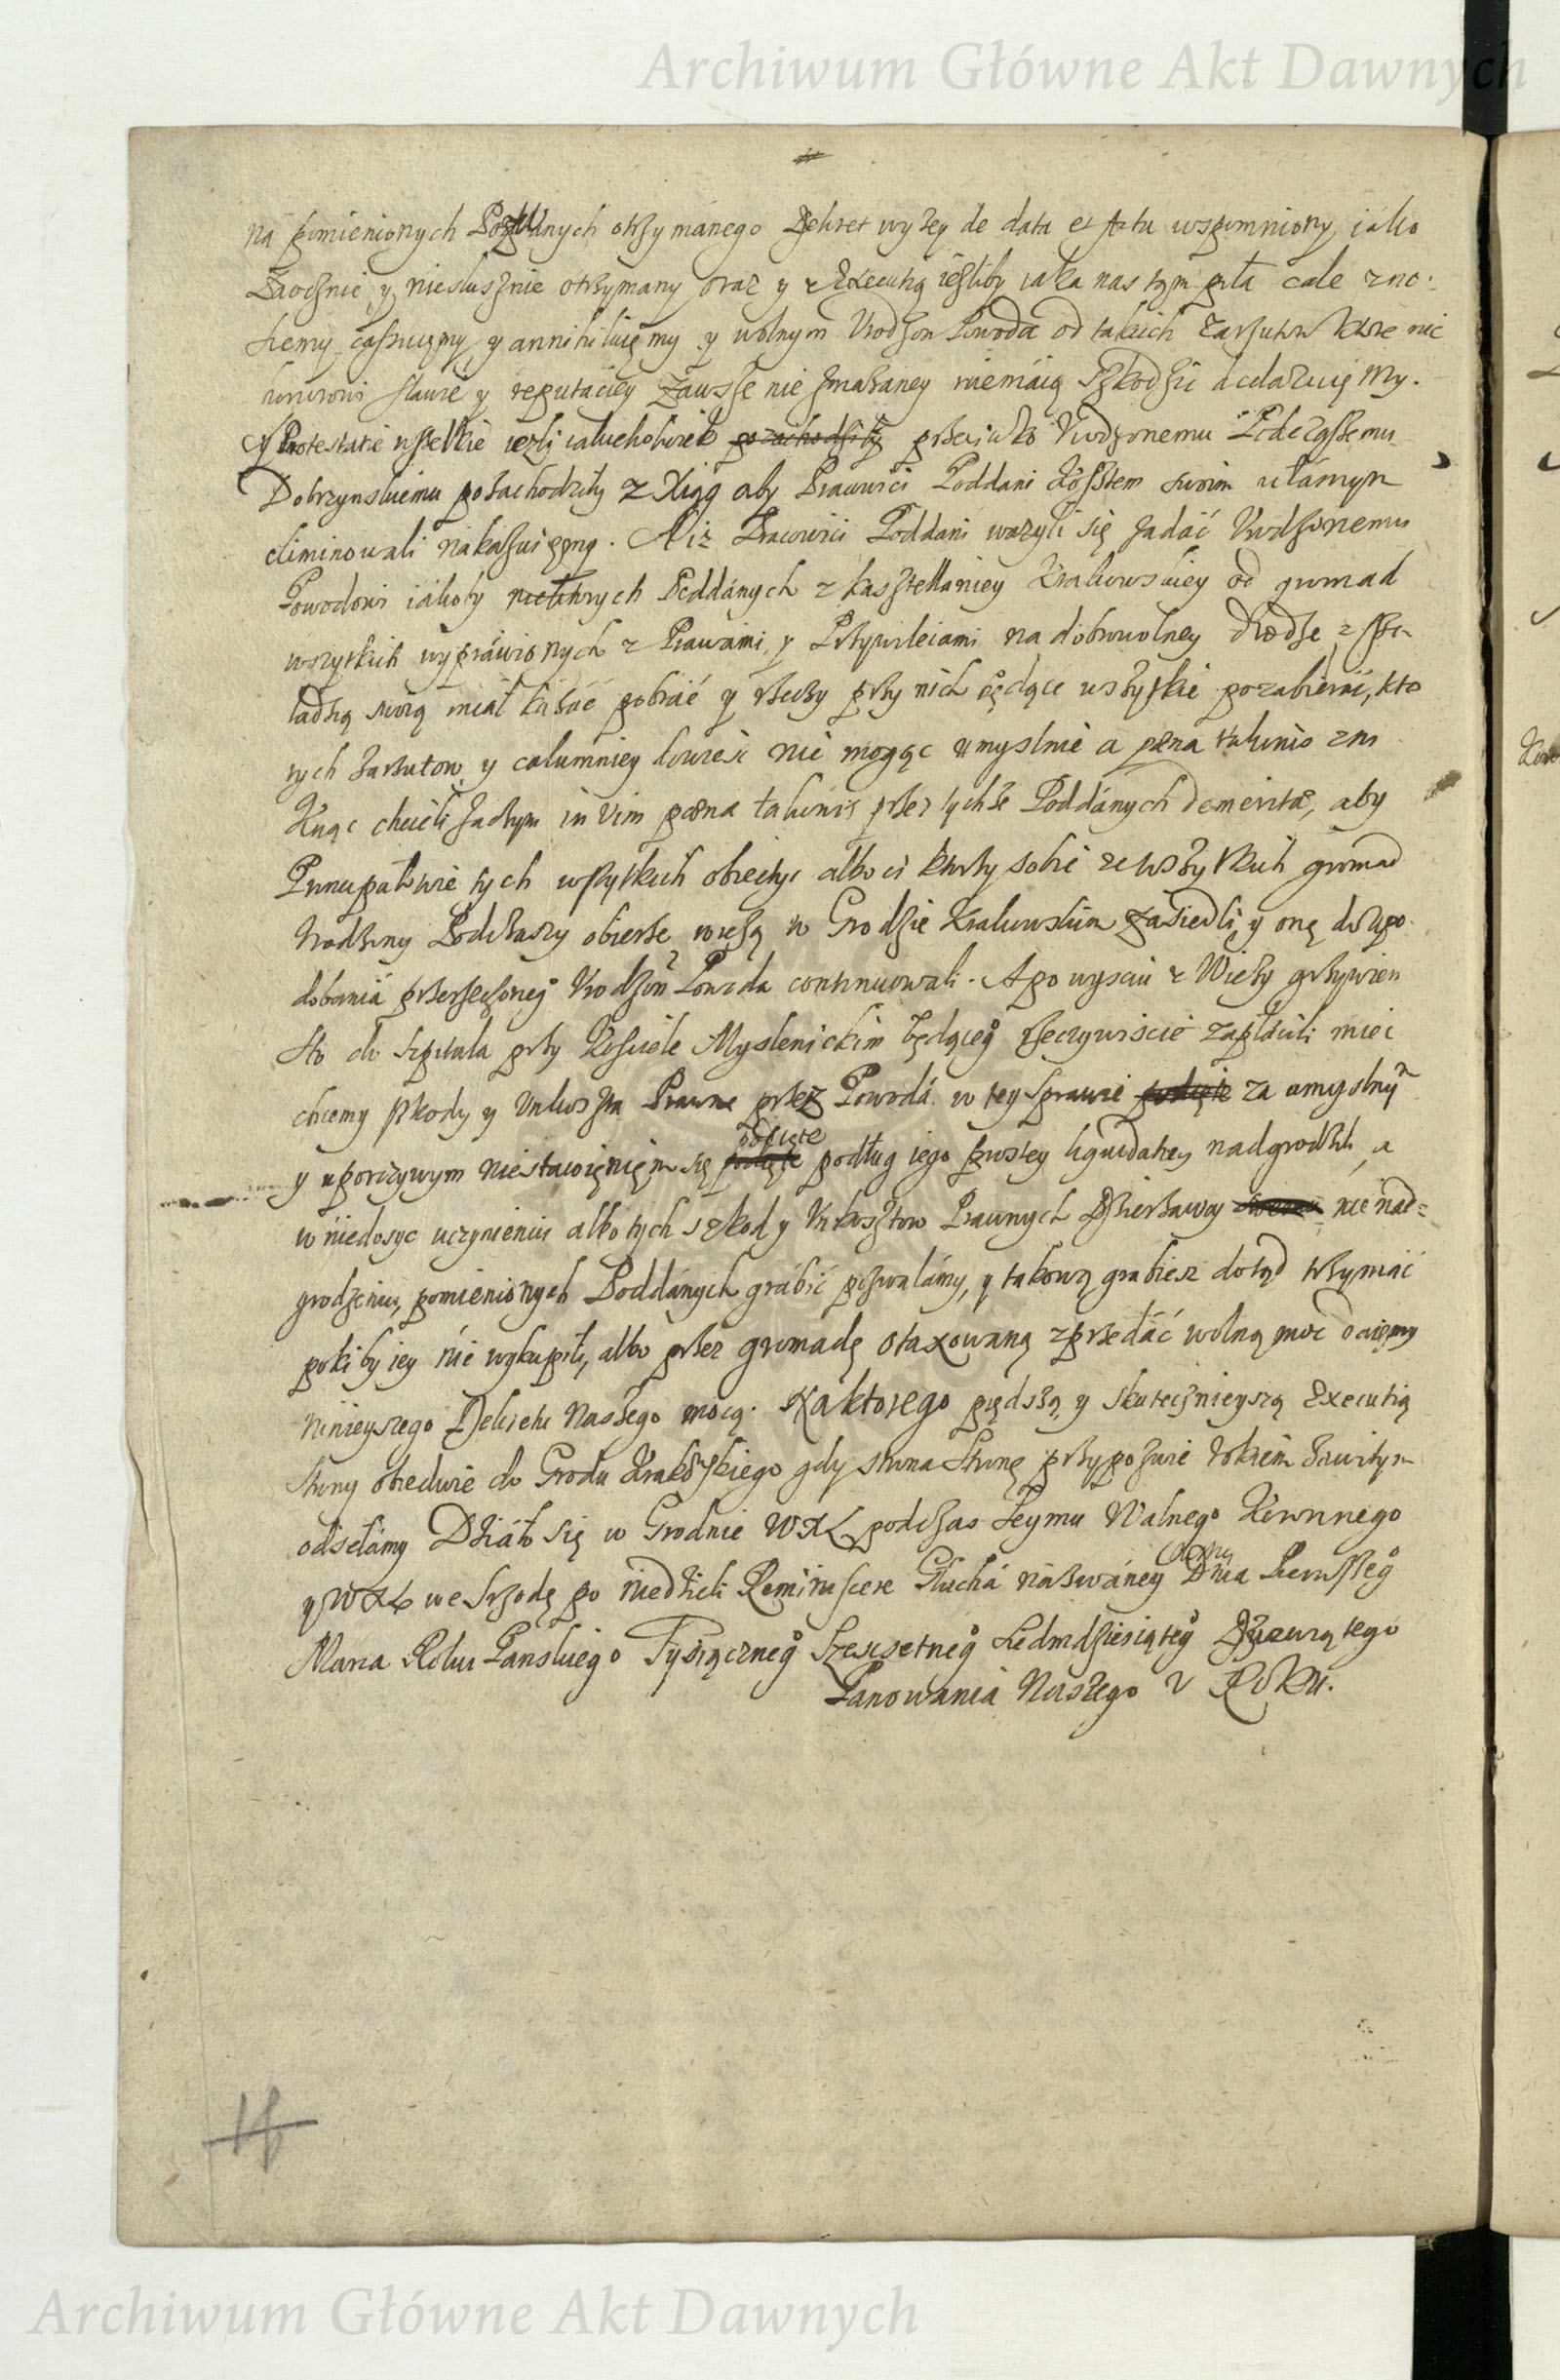 Archiwum Główne Akt Dawnych
na pomienionych Pozwanych otrzymanego Dekret wyżey de data et Actu wspomniony, iako
Zaocznie y niesłusznie otrzymany oraz y z Executią ieśliby iaka nastąpiła cale zno:
siemy, cassuięmy y annihiluięmy y wolnym Urodzon Powoda od takich zarzutow ktore nic
honorowi sławie y reputaciey zawsze nie zmazaney niemaią szkodzić declaruięmy.
y Protestatie wszelkie ieżli iakiekolwiek pozachodziły przeciwko Urodzonemu Podczaszemu
Dobrzynskiemu pozachodziły z Xiąg aby Pracowici Poddani kosztem swoim własnym
eliminowali nakazuięmy. A iż Pracowici Poddani ważyli się zadać Urodzonemu
Powodowi iakoby niektorych Poddanych z kasztellaniey Krakowskiey od gromad
wszytkich wyprawionych z Prawami, y Przywileiami na dobrowolney drodze z
ladzią swoią miał kazać pobrać y rzeczy przy nich będące wszytkie pozabierać, kto
rych zarzutow y calumniey dowieść nie mogąc umyslnie a pæna talionis
chcieli zaczym in vim pæna talionis przez tychże Poddanych demeritæ, aby
Principałowie tych wszytkich obiectys albo ci ktorzy sobie ze wszytkich gromad
Urodzony Podczaszy obierze, wieżą w Grodzie Krakowskim zasiedli, y onę do upo
dobania przerzeczoneg Urodzon Powoda continuowali. A po wysciu z Wieży grzywien
sto do szpitala przy Kosciele Myslenickim będąceg rzeczywiscie zapłacili mieć
chcemy szkody y Unkoszta Prawne przez Powoda w tey sprawie podięte za umyslnym
y uporczywym niestawięnięm się podięte podług iego prostey liquidatiey nadgrodzili, a
w niedosyc uczynieniu albo tych szkod y Unkosztow Prawnych Dzierżawcy nie nad=
grodzeniu, pomienionych Poddanych grabić pozwalamy, y takową grabiesz dotąd trzymać
pokiby iey nie wykupili, albo przez gromadę otaxowaną zprzedać wolną moc daięmy
ninieyszego Dekretu Naszego mocą. Na ktorego prędszą y skutecznieyszą Executią
strony obiedwie do Grodu Krakowskiego gdy strona stronę przypozwie rokiem zawitym
odsełamy Działo się w Grodnie WXL podczas Seymu Walnego Koronnego
y WXL we Srzodę po niedzieli Reminiscere Głucha nazwaney Dnia Pierwszeg
Marca Roku Panskiego Tysiączneg Szescsetneg Siedmdziesiąteg Dziewiątego
Panowania Naszego V Roku.
Archiwum Główne Akt Dawnych